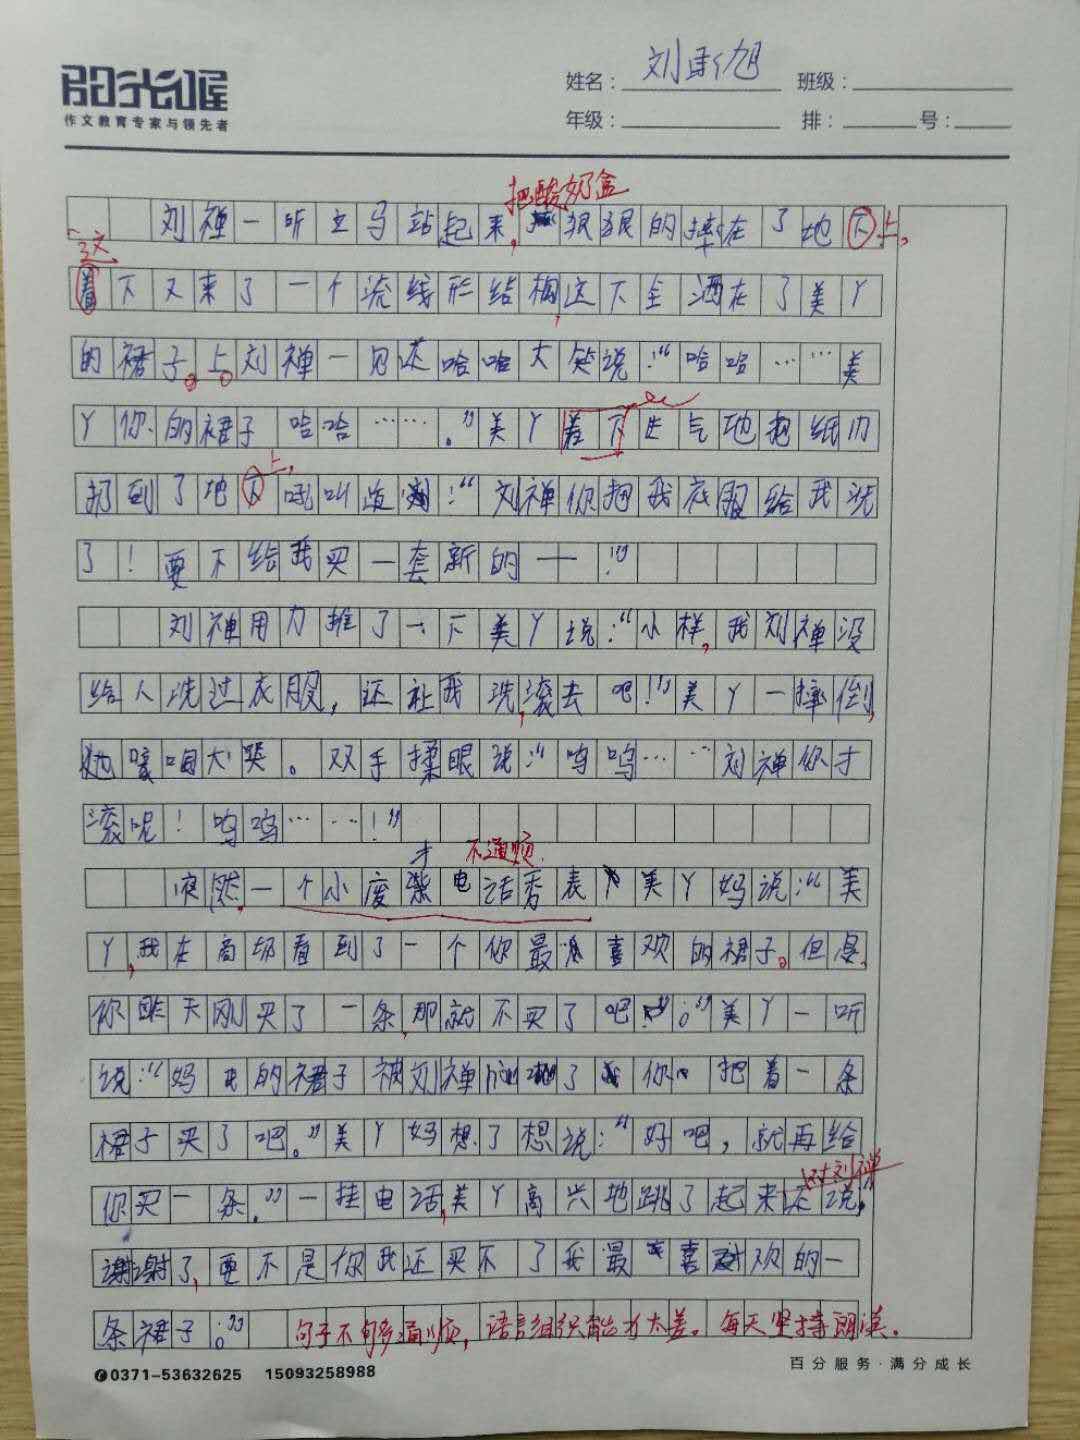 阳光喔
作文教育专家与领先者
姓名： 刘彦旭 班级：
年级： 排： 号：
把酸奶盒
刘禅一听立马站起来，狠狠的摔在了地下上，
这
着下又来了一个流线形结构，这下全洒在了美丫
的裙子上。刘禅一见还哈哈大笑说：“哈哈……美
丫你的裙子哈哈……。”美丫差下生气地把纸巾
上，
扔到了地下吼叫道：“刘禅你把我衣服给我洗
了！要不给我买一套新的——！”
刘禅用力推了一下美丫说：“小样，我刘禅没
给人洗过衣服，还让我洗，滚去吧！”美丫一摔倒，
她嚎啕大哭。双手揉眼说：“呜呜……刘禅你才
滚呢！呜呜……！”
才 不通顺
突然，一个小废紫电话香表美丫妈说：“美
丫，我在商场看到了一个你最喜欢的裙子。但是，
你昨天刚买了一条，那就不买了吧。”美丫一听
说：“妈我的裙子被刘禅了你把着一条
裙子买了吧。”美丫妈想了想说：“好吧，就再给
对刘禅
你买一条。”一挂电话，美丫高兴地跳了起来还说，
谢谢了，要不是你我还买不了我最喜欢的一
条裙子。” 句子不够多通顺，语言组织能力太差。每天坚持朗读。
✆0371-53632625 15093258988
百分服务·满分成长